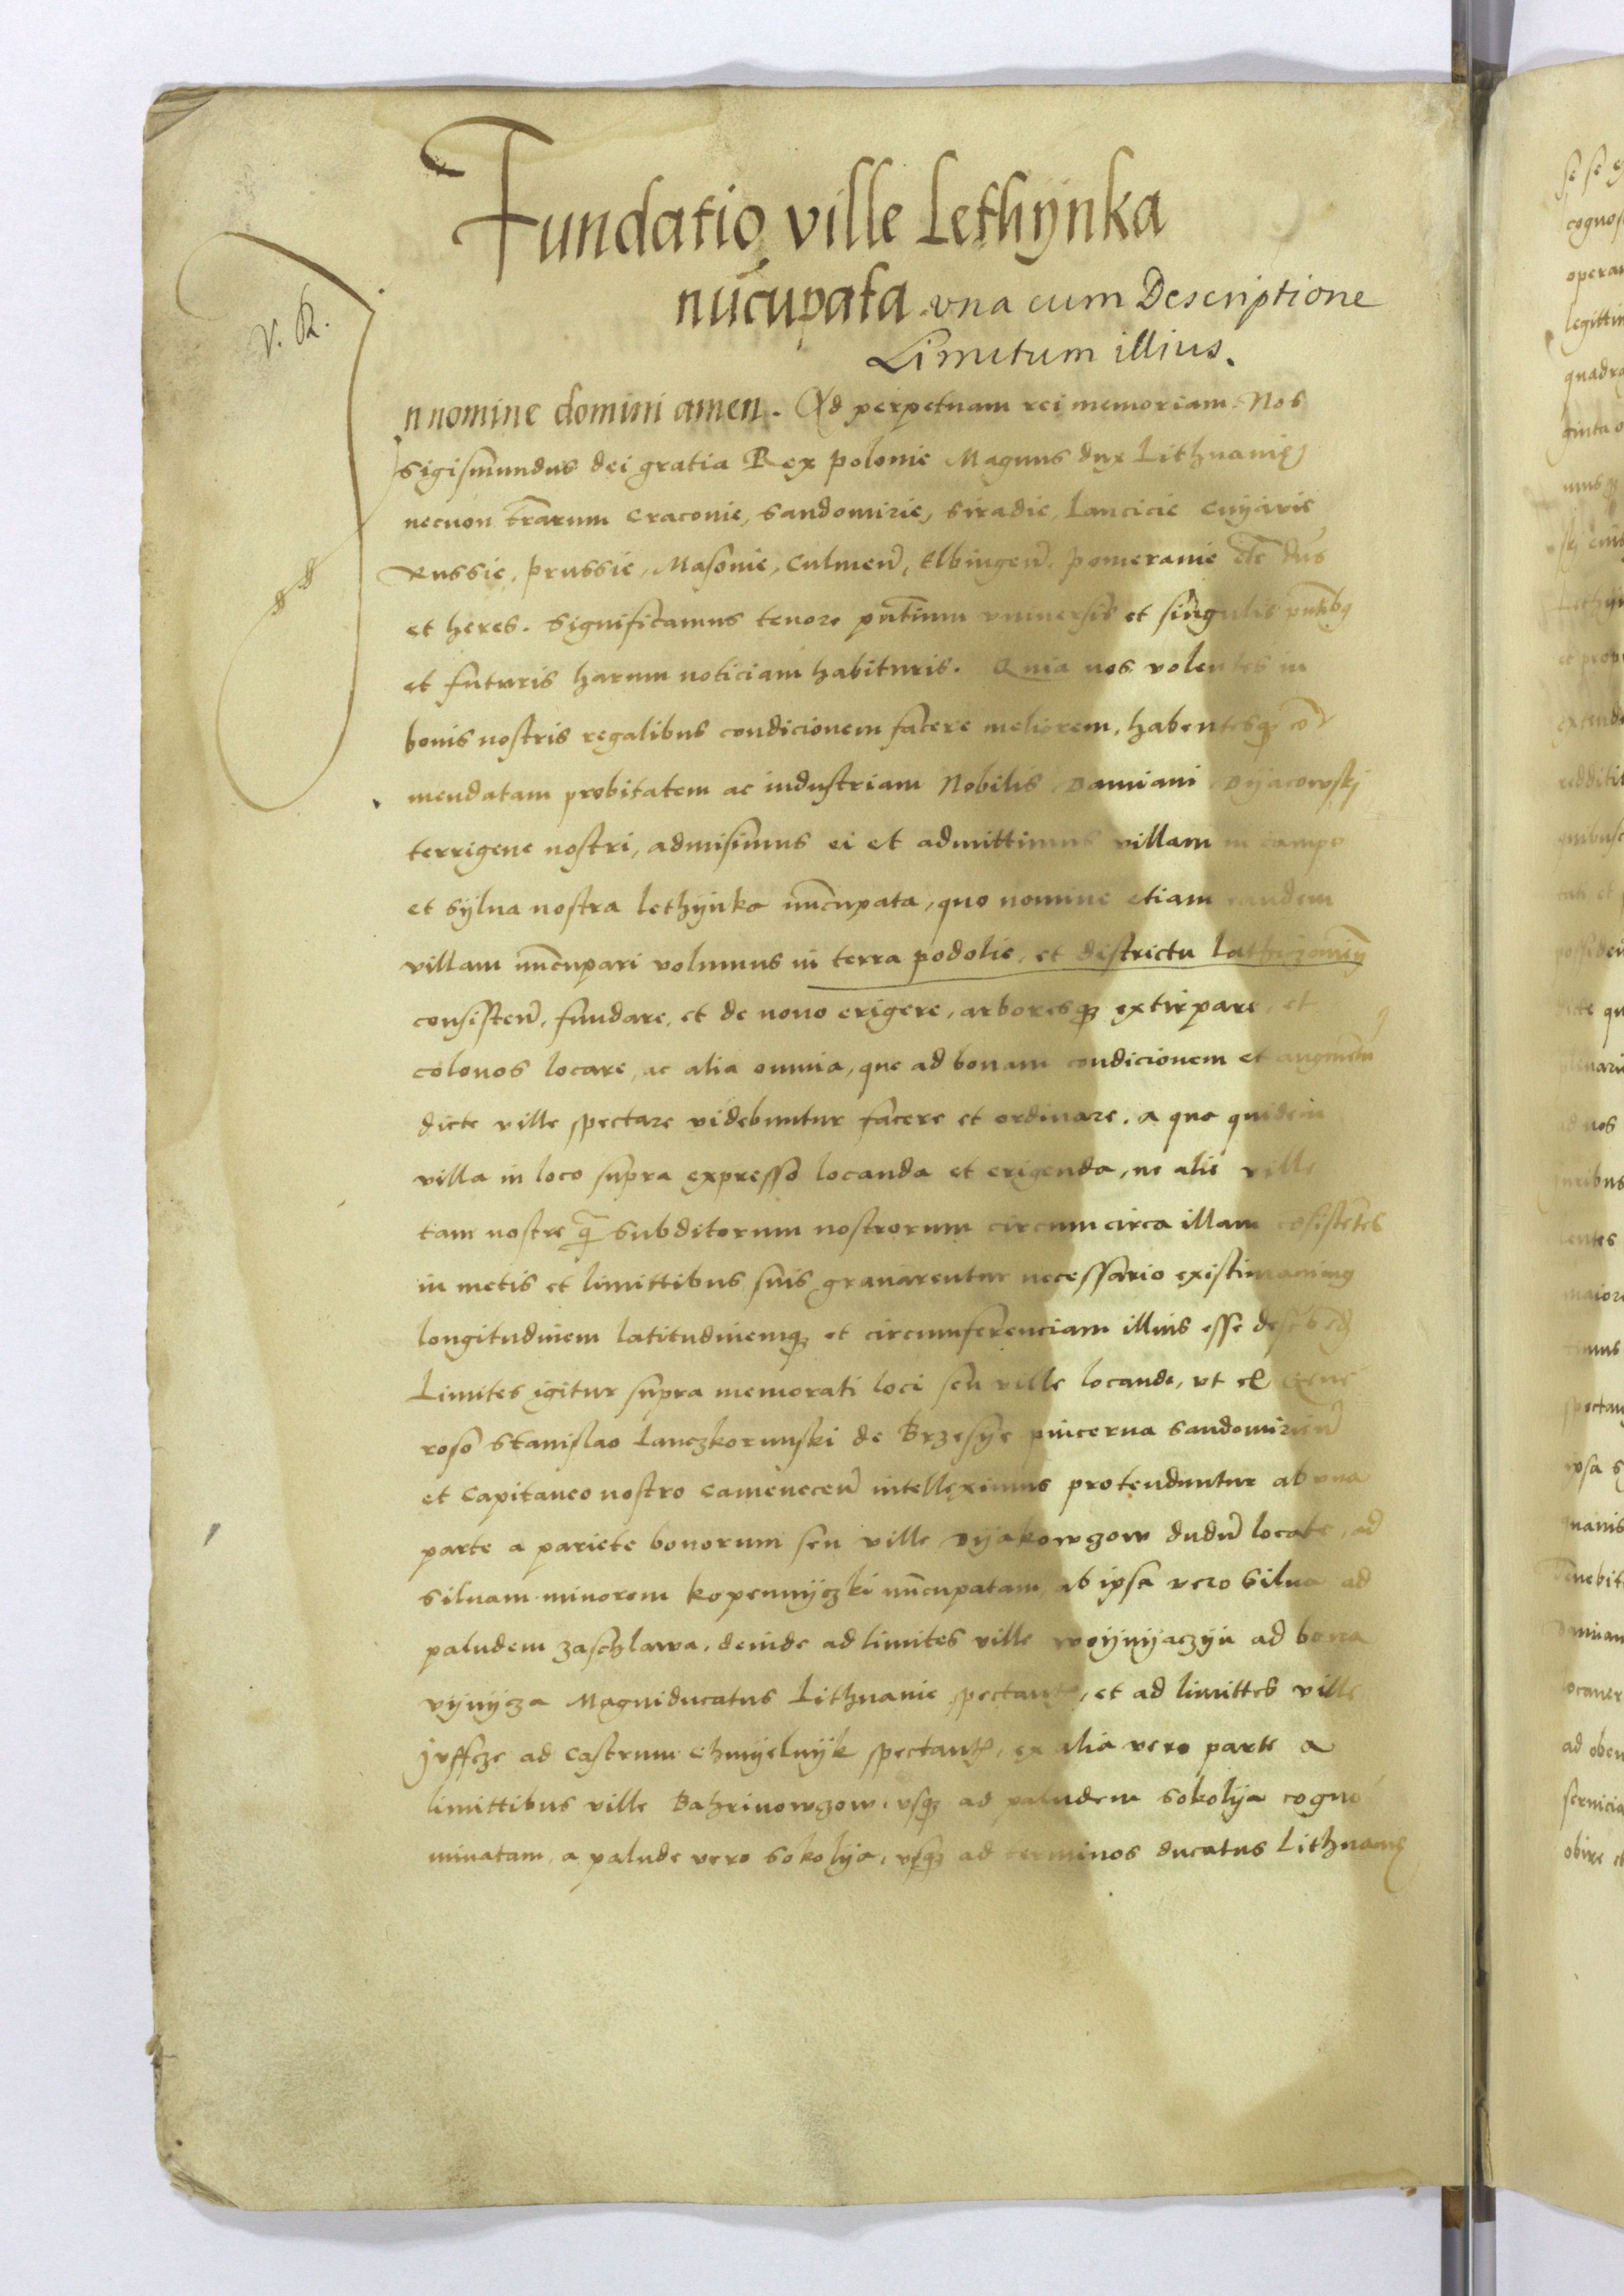 Fundatio ville Lethÿnka
nūcupata vna cum Descriptione
Limitum illius.
V. R.
In nomine domini amen. Ad perpetuam rei memoriam. Nos
Sigismundus dei gratia Rex polonie Magnus dux Lithuanię
necnon trārum Cracouie, Sandomirie, Siradie, Lancicie Cuÿauie
Russie, prussie, Masouie, Culmen̄, Elbingen̄. pomeranie etc̄ dn̄s
et heres. Significamus tenore pn̄tium vniuersis et singulis pn̄tibꝫ
et futuris harum noticiam habituris. Quia nos volentes in
bonis nostris regalibus condicionem facere meliorem, habentesqꝫ cō
mendatam probitatem ac industriam Nobilis Damiani Dÿacowskj
terrigene nostri, admisimus ei et admittimus villam in campo
et sÿlua nostra lethÿnka nūcupata, quo nomine etiam eandem
villam nūcupari volumus in terra podolie, et districtu
consisten̄. fundare, et de nouo erigere, arboresqꝫ extirpare, et
colonos locare, ac alia omnia, que ad bonam condicionem et augmen̄
dicte ville spectare videbuntur facere et ordinare. a qua quidem
villa in loco supra expresso locanda et erigenda, ne alie ville
tam nostre q̄ Subditorum nostrorum circumcirca illam cōsistētes
in metis et limittibus suis grauarentur necessario existimauimꝰ
longitudinem latitudinemqꝫ et circumferenciam illius esse
Limites igitur supra memorati loci seu ville locande, vt ex Gene
roso Stanislao Lanczkorunski de Brzesÿe pincerna Sandomirien̄
et Capitaneo nostro Camenecen̄ intelleximus protenduntur ab vna
parte a pariete bonorum seu ville Dÿakowgow dudū locate, ad
siluam minorem kopennÿczki nūcupatam, ab ipsa vero Silua ad
paludem zaschlawa, deinde ad limites ville woÿnÿaczÿn ad bona
vÿnÿcza Magniducatus Lithuanie spectan̄, et ad limittes ville
Jvffcze ad Castrum Chmÿelnÿk spectan̄, ex alia vero parte a
limittibus ville Bahrinowgow, vsqꝫ ad paludem Sokolÿa cogno
minatam, a palude vero Sokolÿa, vsqꝫ ad terminos ducatus Lithuanię